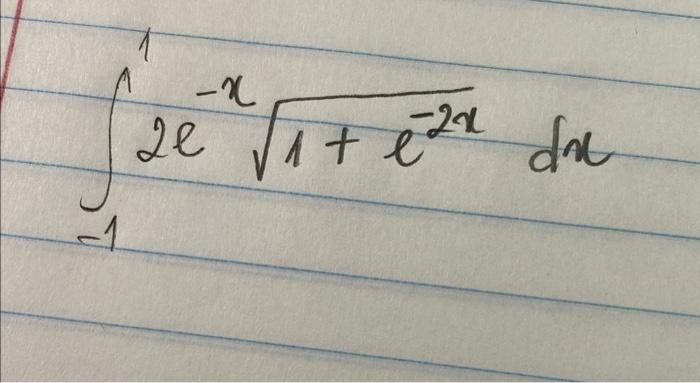 ∫_{-1}^{1} 2e^{-x} √(1 + e^{-2x}) dx